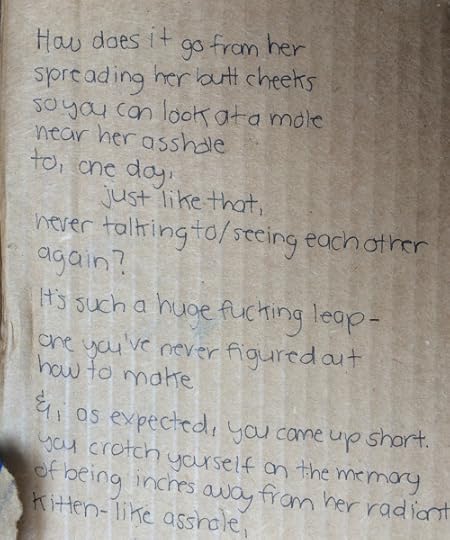 How does it go from her
spreading her butt cheeks
so you can look at a mole
near her asshole
to, one day,
just like that,
never talking to/seeing each other
again?
It's such a huge fucking leap-
one you've never figured out
how to make
&, as expected, you come up short.
you crotch yourself on the memory
of being inches away from her radiant
kitten-like asshole,